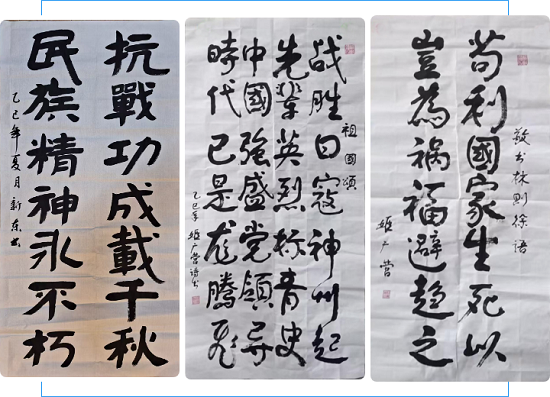 抗戰功成載千秋
民族精神永不朽
乙巳年夏月新东书
祖國頌
战胜日寇神州起
先輩英烈标青史
中國強盛党領导
時代已是龙騰飞
乙巳年姬广营语书
敬书林则徐语
苟利國家生死以
豈為祸福避趋之
姬广营